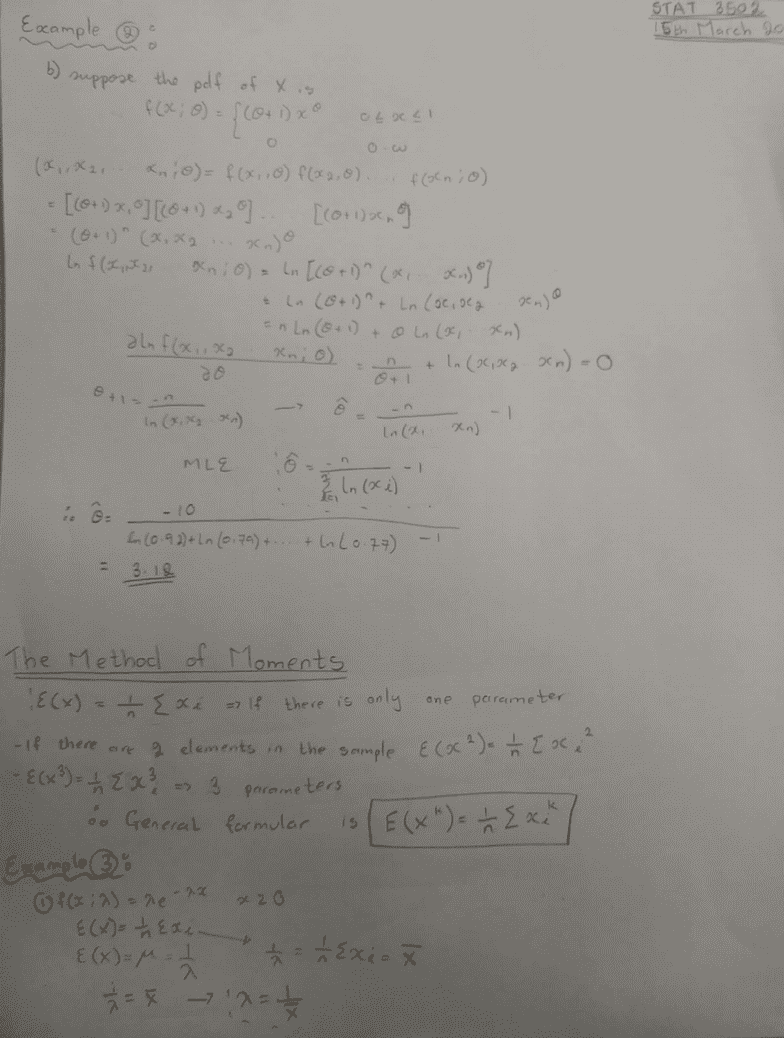 STAT 3502
15th March 20
Example ② :
b) suppose the pdf of X is
f(x; θ) = { (θ+1) x^θ    0 ≤ x ≤ 1
0    o.w
(x₁, x₂, ... xn; θ) = f(x₁, θ) f(x₂, θ) ... f(xn; θ)
= [(θ+1) x₁^θ] [(θ+1) x₂^θ] .. [(θ+1) xn^θ]
= (θ+1)^n (x₁ x₂ ... xn)^θ
ln f(x₁, x₂, xn; θ) = ln [(θ+1)^n (x₁ .. xn)^θ]
= ln (θ+1)^n + ln (x₁ x₂ .. xn)^θ
= n ln (θ+1) + θ ln (x₁ .. xn)
∂ ln f(x₁, x₂ .. xn; θ) / ∂θ = n / (θ+1) + ln (x₁ x₂ xn) = 0
θ+1 = -n / ln (x₁ x₂ .. xn) → θ̂ = -n / ln (x₁ .. xn) - 1
MLE : θ̂ = -n / Σ ln (xi) - 1
∴ θ̂ = -10 / ln (0.92) + ln (0.79) + ... + ln (0.77) - 1
= 3.12
The Method of Moments
E(x) = 1/n Σ xi ⇒ If there is only one parameter
- If there are 2 elements in the sample E(x²) = 1/n Σ xi²
- E(x³) = 1/n Σ xi³ ⇒ 3 parameters
∴ General formular is E(x^k) = 1/n Σ xi^k
Example ③ :
① f(x; λ) = λe^-λx    x ≥ 0
E(x) = 1/n Σ xi → 1/λ = 1/n Σ xi = x̄
E(x) = μ = 1/λ
1/λ = x̄ → λ = 1/x̄